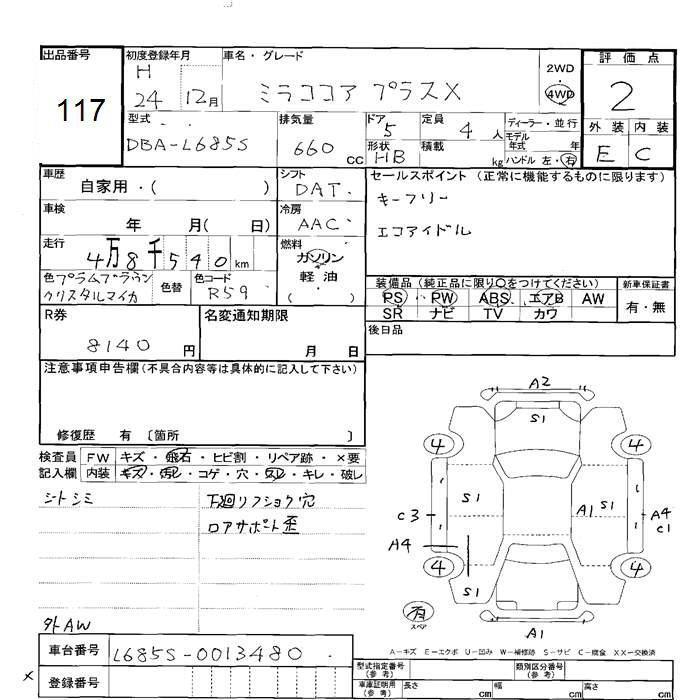 出品番号 初度登録年月 車名・グレード 評価点
117
H 24 12月 ミラココア プラスX 2WD 4WD 2
型式 排気量 ドア 定員 ディーラー・並行 外装 内装
DBA-L685S 660 CC 5 4 人 モデル年式 年 E C
形状 HB 積載 kg ハンドル 左・右
車歴 シフト セールスポイント (正常に機能するものに限ります)
自家用・( ) DAT キーフリー
車検 冷房
年 月( 日) AAC エコアイドル
走行 燃料
4万8千540km ガソリン
軽油
( )
色 プラムブラウンクリスタルマイカ 色替 色コード R59
装備品 (純正品に限り○をつけてください) 新車保証書
PS PW ABS エアB AW 有・無
SR ナビ TV カワ
R券 名変通知期限 後日品
8140円 月 日
注意事項申告欄(不具合内容等は具体的に記入して下さい)
修復歴 有 〔箇所 〕
検査員 FW キズ・飛石・ヒビ割・リペア跡・×要
記入欄 内装 キズ・汚レ・コゲ・穴・スレ・キレ・破レ
シートシミ 下廻リフショク穴
ロアサポート歪
外AW
A2
S1
4 4
C3 S1 A1 S1 A4
C1
A4
4 4
S1
有
スペア
A1
A-キズ E-エクボ U-凹み W-補修跡 S-サビ C-腐食 XX-交換済
車台番号 L685S-0013480
型式指定番号(参考) 類別区分番号(参考)
× 登録番号
車庫証明用(参考) 長さ cm 幅 cm 高さ cm